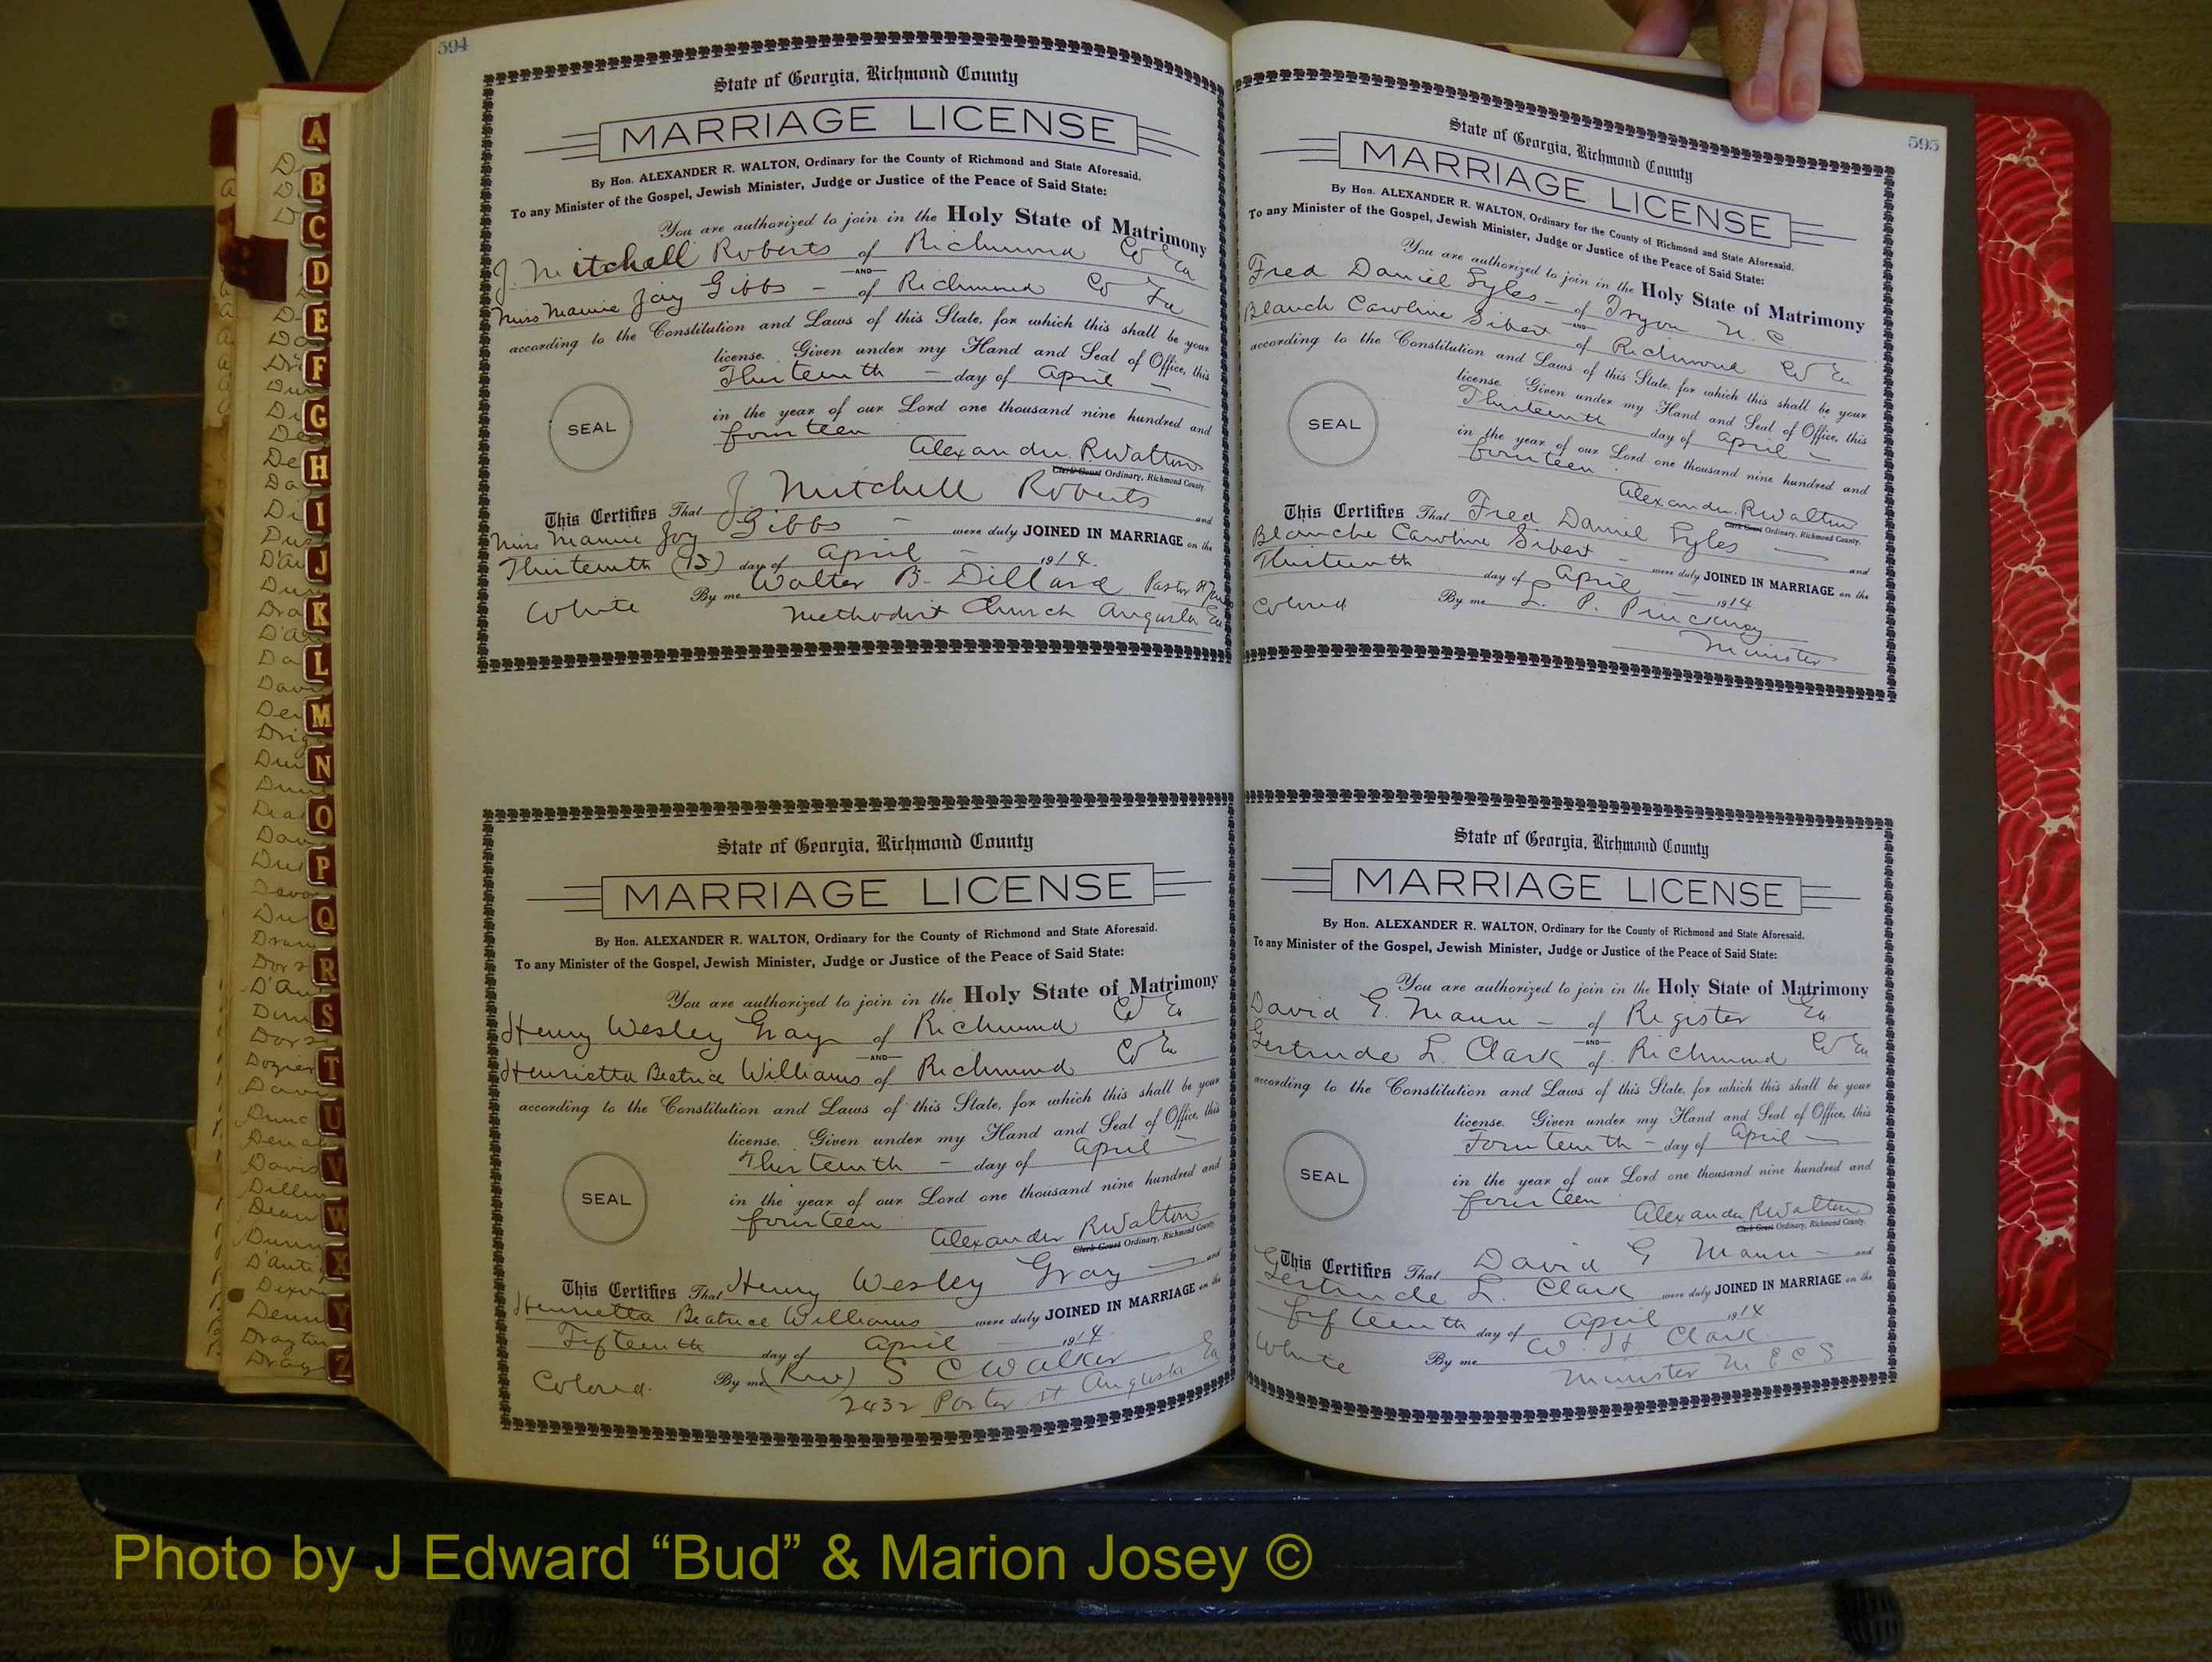 594
State of Georgia, Richmond County
MARRIAGE LICENSE
By Hon. ALEXANDER R. WALTON, Ordinary for the County of Richmond and State Aforesaid.
To any Minister of the Gospel, Jewish Minister, Judge or Justice of the Peace of Said State:
You are authorized to join in the Holy State of Matrimony
J. Mitchell Roberts of Richmond Co Ga
AND
Miss Mamie Joy Gibbs - of Richmond Co Ga
according to the Constitution and Laws of this State, for which this shall be your
license. Given under my Hand and Seal of Office, this
Thirteenth - day of April -
in the year of our Lord one thousand nine hundred and
fourteen
SEAL
Alexander R Walton
Clerk Court Ordinary, Richmond County.
This Certifies That J Mitchell Roberts and
Miss Mamie Joy Gibbs - were duly JOINED IN MARRIAGE on the
Thirteenth (13) day of April - 1914.
By me Walter B. Dillard Pastor
White Methodist Church Augusta Ga
State of Georgia, Richmond County
MARRIAGE LICENSE
By Hon. ALEXANDER R. WALTON, Ordinary for the County of Richmond and State Aforesaid.
To any Minister of the Gospel, Jewish Minister, Judge or Justice of the Peace of Said State:
You are authorized to join in the Holy State of Matrimony
Henry Wesley Gray of Richmond Co Ga
AND
Henrietta Beatrice Williams of Richmond Co Ga
according to the Constitution and Laws of this State, for which this shall be your
license. Given under my Hand and Seal of Office, this
Thirteenth - day of April -
in the year of our Lord one thousand nine hundred and
fourteen
SEAL
Alexander R Walton
Clerk Court Ordinary, Richmond County.
This Certifies That Henry Wesley Gray - and
Henrietta Beatrice Williams were duly JOINED IN MARRIAGE on the
Fifteenth day of April 1914.
Colored. By me (Rev) S C Walker
2432 Porter st Augusta Ga
595
State of Georgia, Richmond County
MARRIAGE LICENSE
By Hon. ALEXANDER R. WALTON, Ordinary for the County of Richmond and State Aforesaid.
To any Minister of the Gospel, Jewish Minister, Judge or Justice of the Peace of Said State:
You are authorized to join in the Holy State of Matrimony
Fred Daniel Lyles - of Tryon N. C
AND
Blanch Caroline Sibert of Richmond Co Ga
according to the Constitution and Laws of this State, for which this shall be your
license. Given under my Hand and Seal of Office, this
Thirteenth day of April -
in the year of our Lord one thousand nine hundred and
fourteen
SEAL
Alexander R Walton
Clerk Court Ordinary, Richmond County.
This Certifies That Fred Daniel Lyles - and
Blanche Caroline Sibert - were duly JOINED IN MARRIAGE on the
Thirteenth day of April - 1914.
Colored By me L. P. Pinckney
Minister
State of Georgia, Richmond County
MARRIAGE LICENSE
By Hon. ALEXANDER R. WALTON, Ordinary for the County of Richmond and State Aforesaid.
To any Minister of the Gospel, Jewish Minister, Judge or Justice of the Peace of Said State:
You are authorized to join in the Holy State of Matrimony
David G. Mann - of Register Ga
AND
Gertrude L. Clark of Richmond Co Ga
according to the Constitution and Laws of this State, for which this shall be your
license. Given under my Hand and Seal of Office, this
Fourteenth - day of April -
in the year of our Lord one thousand nine hundred and
fourteen
SEAL
Alexander R Walton
Clerk Court Ordinary, Richmond County.
This Certifies That David G Mann - and
Gertrude L. Clark were duly JOINED IN MARRIAGE on the
fifteenth day of April 1914
White By me W. H Clark
Minister M E C S
A
B
C
D
E
F
G
H
I
J
K
L
M
N
O
P
Q
R
S
T
U
V
W
X
Y
Z
Photo by J Edward “Bud” & Marion Josey ©